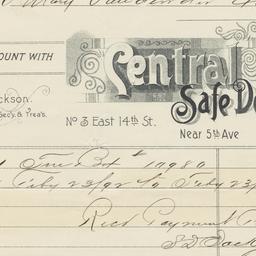 OUNT WITH
Central
Safe De
ckson.
Sec'y. & Treas.
No 3 East 14th St.
Near 5th Ave
10980
Feby 23/92 to Feby 23/
Recd Payment